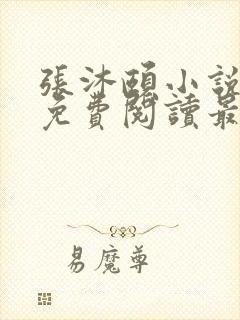 張沐頤小說
免費閱讀最
易魔尊